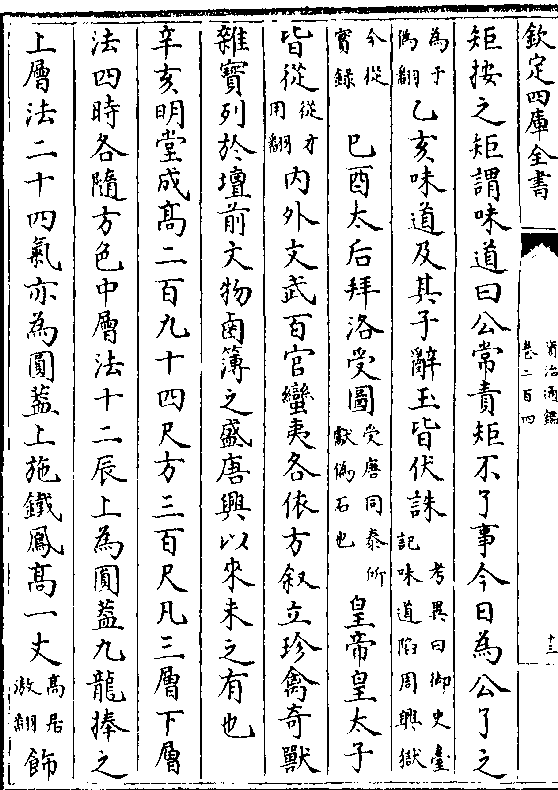 欽定四庫全書
資治通鑑
卷二百四
十三
矩按之矩謂味道曰公常責矩不了事今日為公了之
為于
偽翻
乙亥味道及其子辭玉皆伏誅
考異曰御史臺
記味道陷周興獄
今從
實録
己酉太后拜洛受圖
受唐同泰所
獻偽石也
皇帝皇太子
皆從
從才
用翻
内外文武百官蠻夷各依方叙立珍禽奇獸
雜寳列於壇前文物鹵簿之盛唐興以來未之有也
辛亥明堂成髙二百九十四尺方三百尺凡三層下層
法四時各隨方色中層法十二辰上為圓葢九龍捧之
上層法二十四氣亦為圓葢上施鐵鳳髙一丈
高居
傲翻
飾